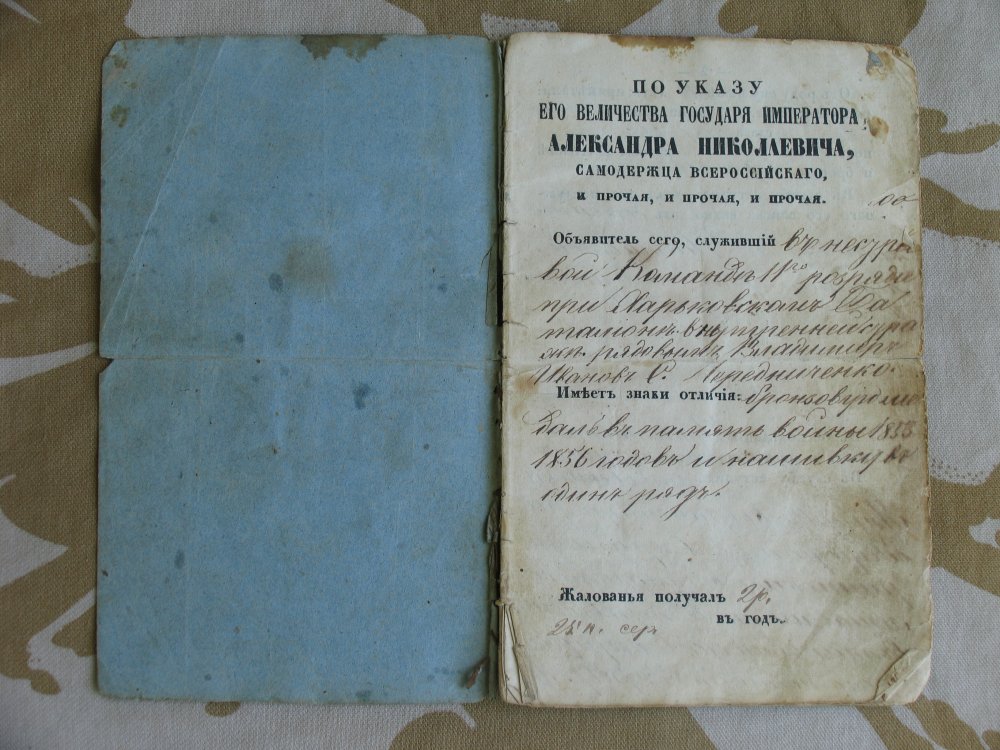 ПО УКАЗУ
ЕГО ВЕЛИЧЕСТВА ГОСУДАРЯ ИМПЕРАТОРА,
АЛЕКСАНДРА НИКОЛАЕВИЧА,
САМОДЕРЖЦА ВСЕРОССІЙСКАГО,
И ПРОЧАЯ, И ПРОЧАЯ, И ПРОЧАЯ.
Объявитель сего, служившій въ нестрое
вой Командѣ 1го розряда
при Харьковскомъ Ба
таліонѣ внутренней стра
жи рядовымъ Владиміръ
Ивановъ С. Чередниченко.
Имѣетъ знаки отличія: бронзовую ме
даль въ память войны 1853
1856 годовъ и нашивку въ
одинъ рядъ.
Жалованья получалъ 2 р.
въ годъ.
25 к. сер